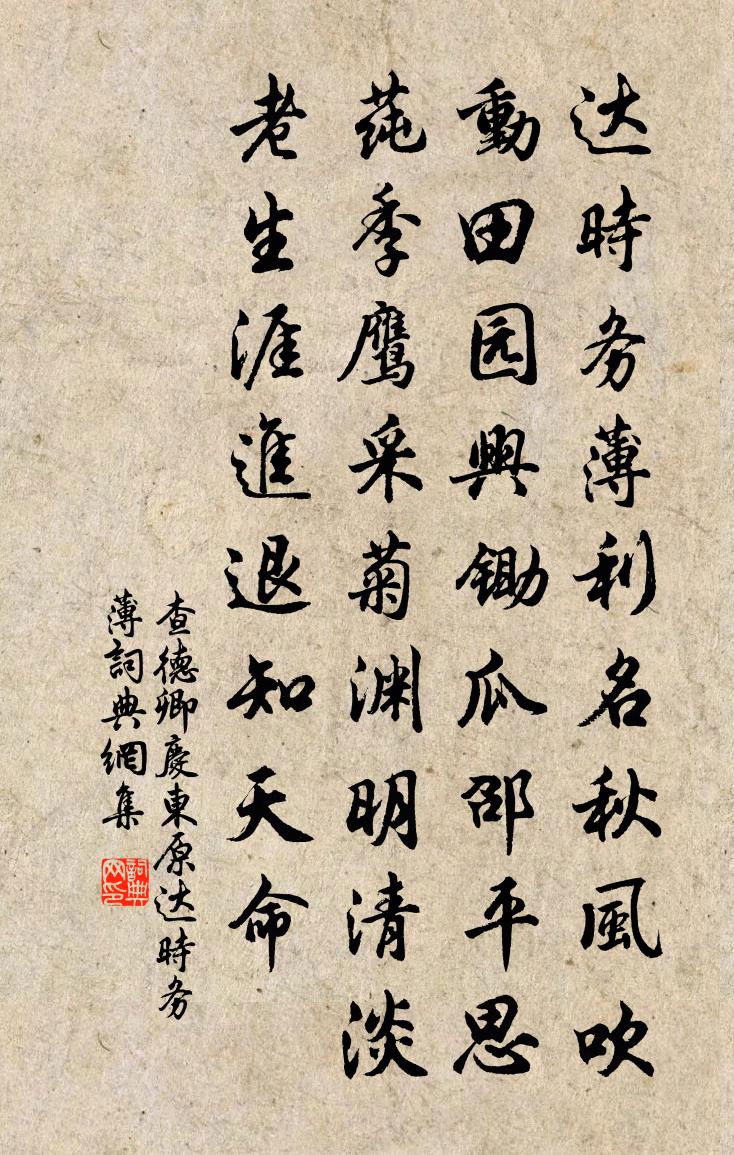 达時务薄利名秋風吹
動田园興锄瓜邵平思
莼季鹰采菊渊明清淡
老生涯進退知天命
查德卿慶東原达時务
薄詞典網集
詞典
网印